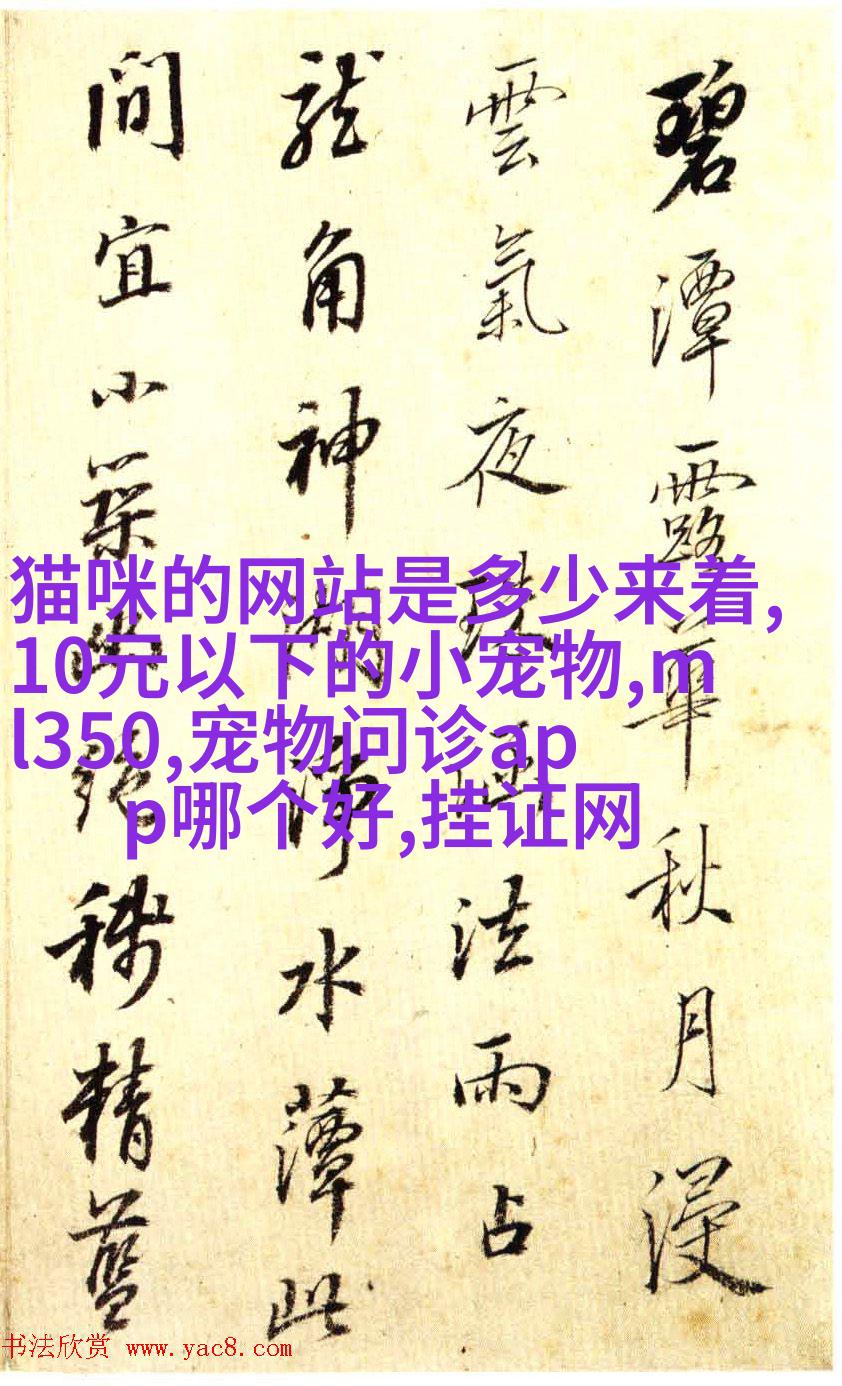 碧潭露華秋月浸
雲氣夜珠法雨占
龍角神湖淨水藫此
間宜小築幽絶稱精藍
猫咪的网站是多少来着,
10元以下的小宠物,m
l350,宠物问诊ap
p哪个好,挂证网
书法欣赏 www.yac8.com